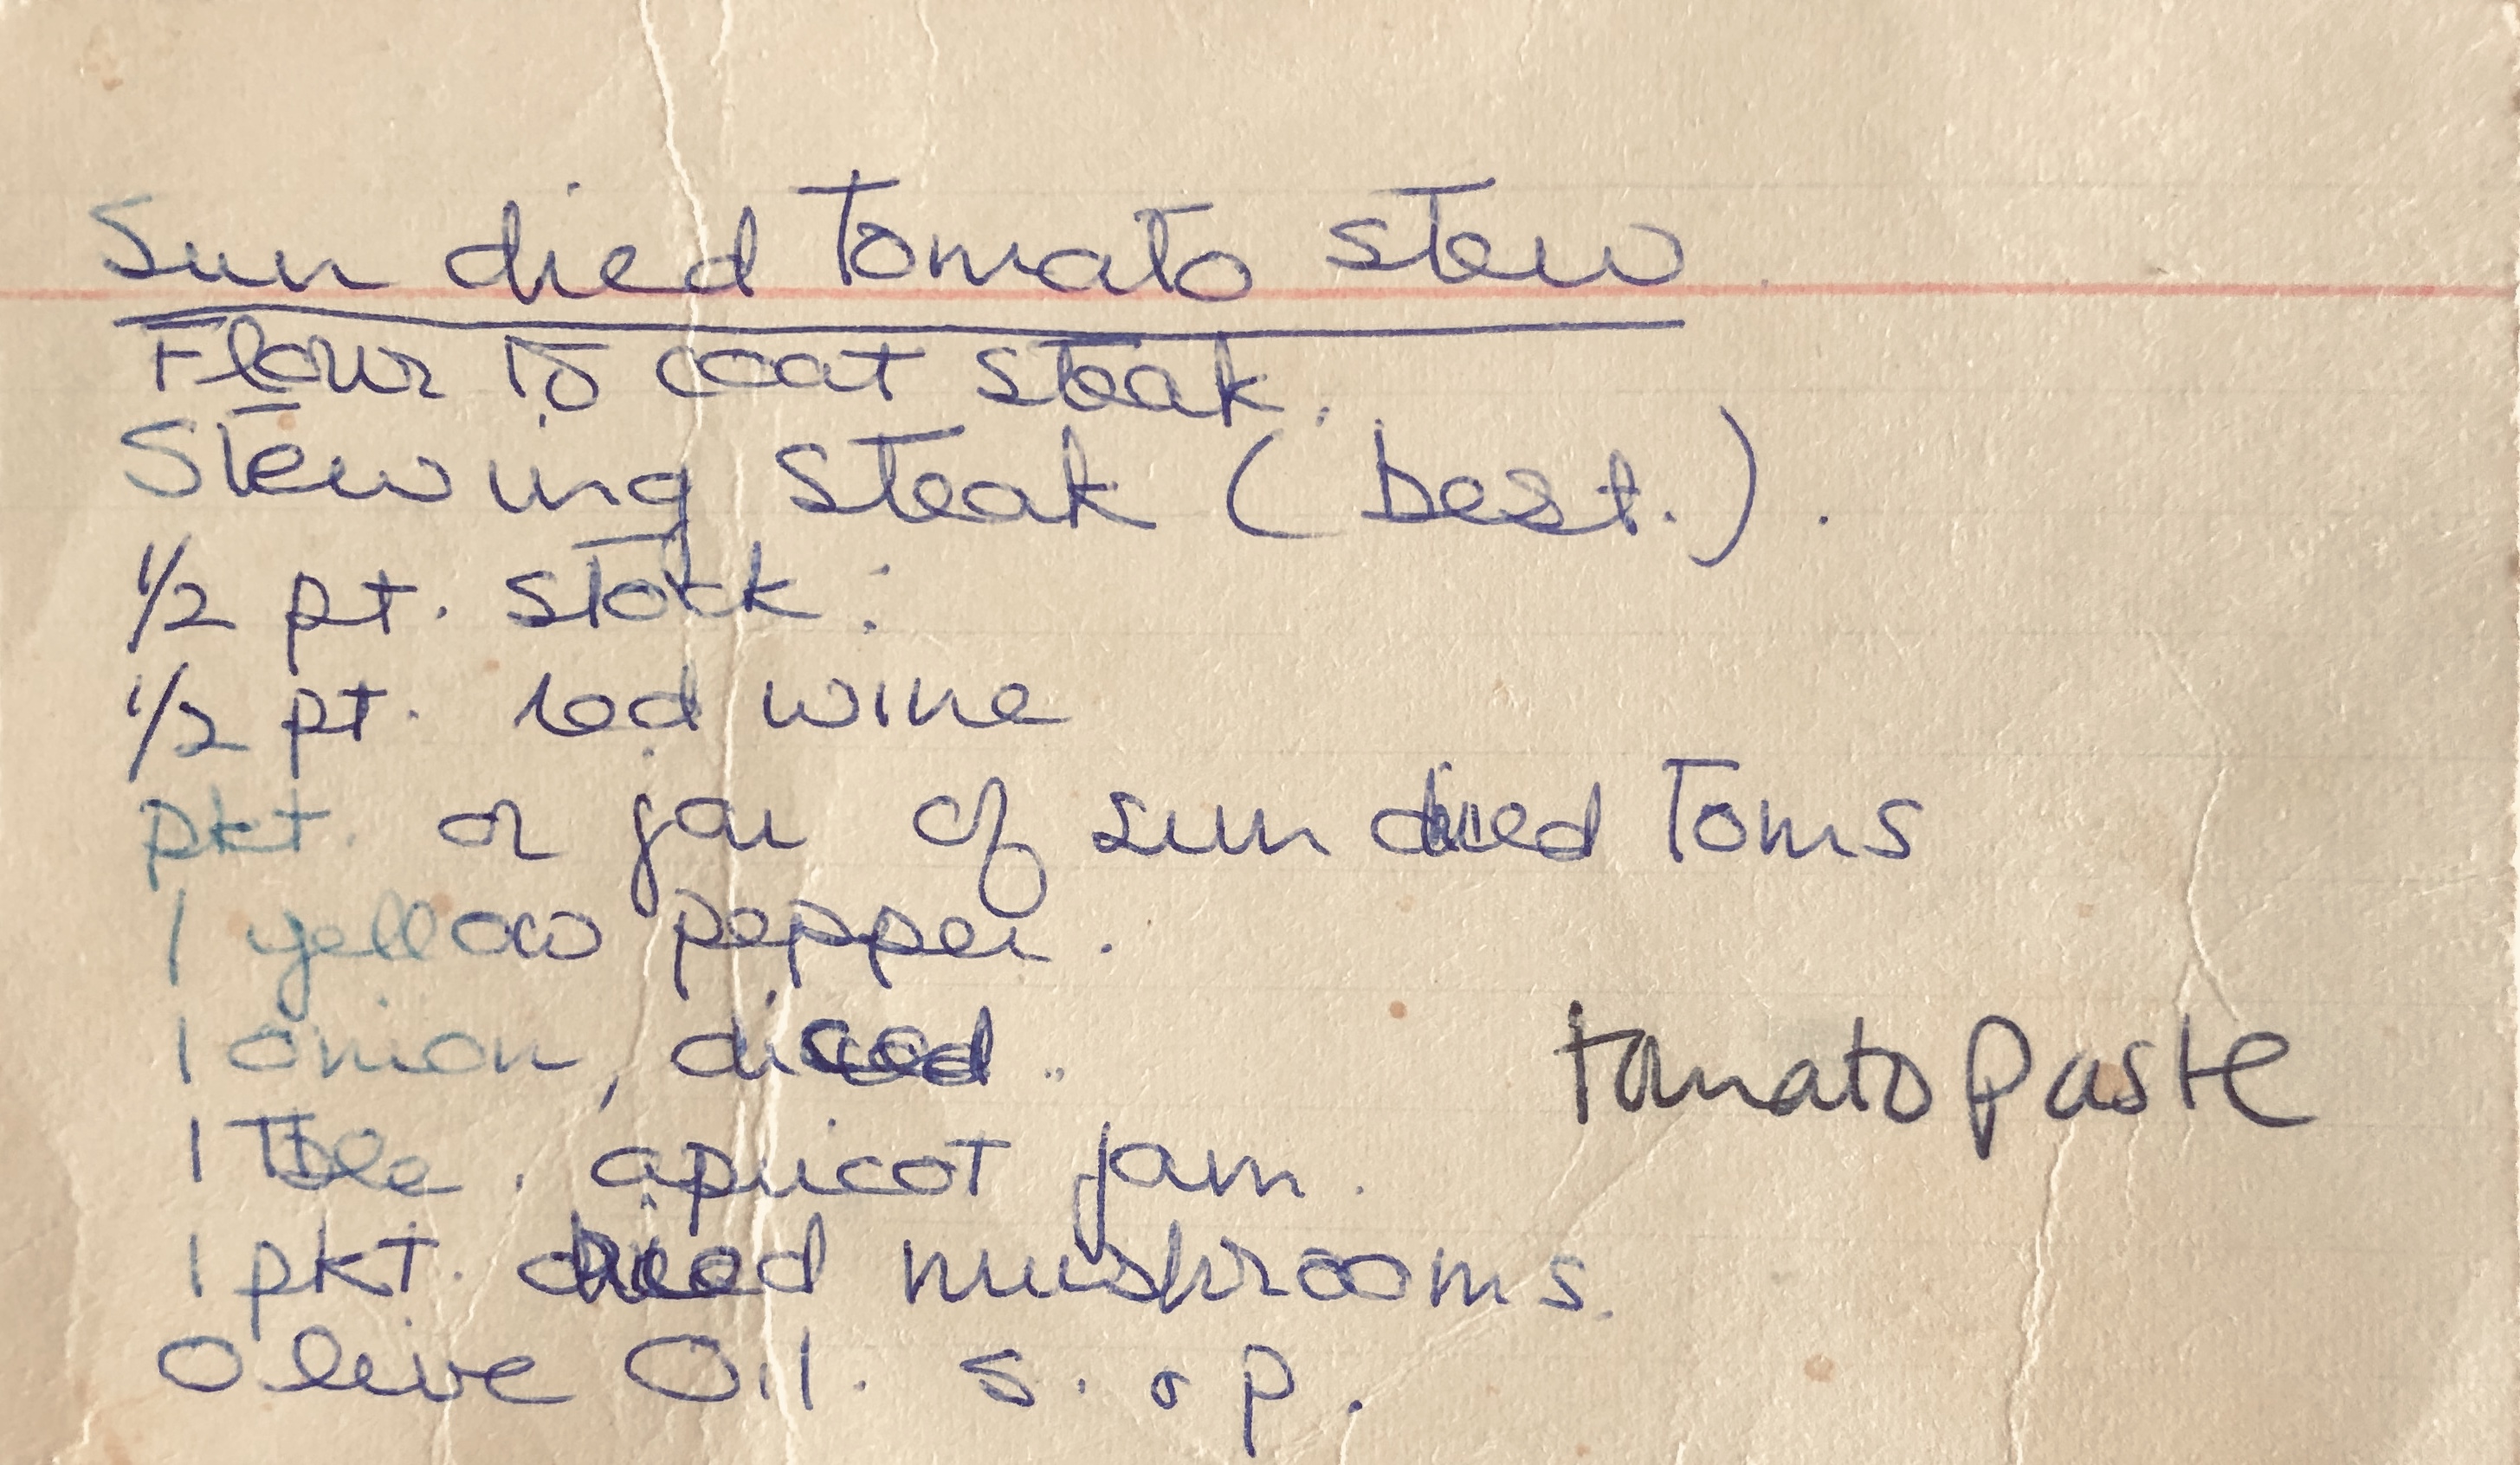 Sun dried tomato stew.
Flour to coat steak.
Stewing steak (best.).
1/2 pt. stock.
1/2 pt. red wine
pkt. or jar of sun dried Toms
1 yellow pepper.
1 onion, diced.
tomato paste
1 Tble. apricot jam.
1 pkt. dried mushrooms.
Olive Oil. s. & p.